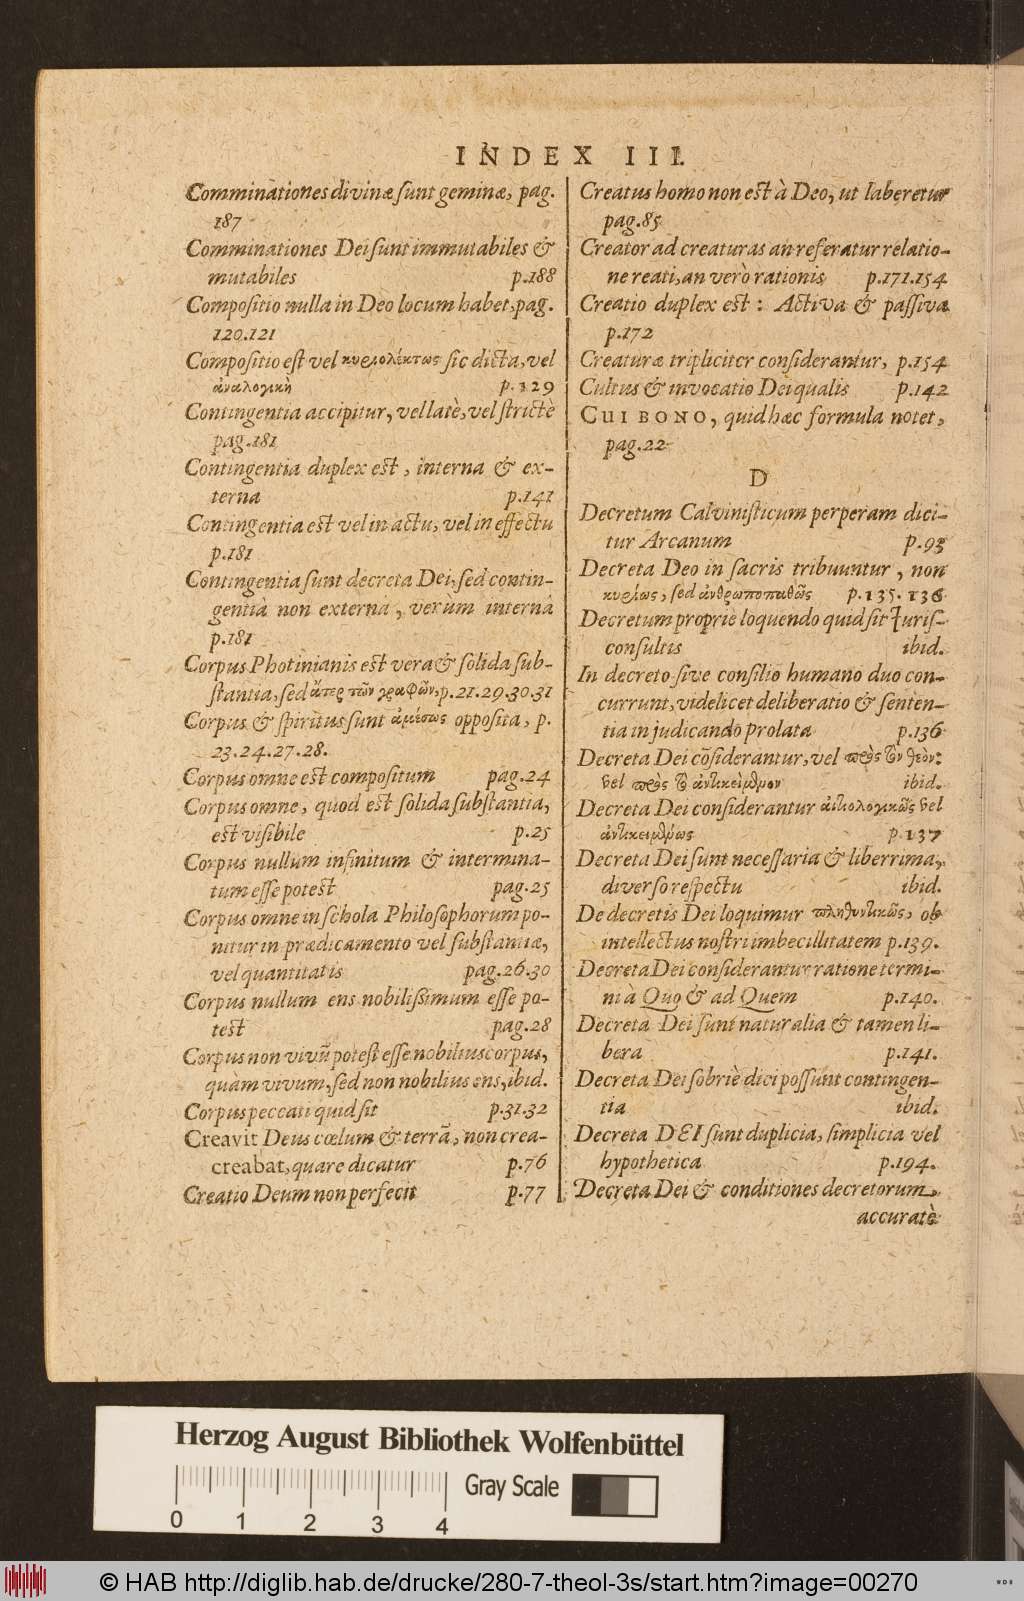 INDEX III.
Comminationes divinæ sunt geminæ, pag.
187
Comminationes Dei sunt immutabiles &
mutabiles p.188
Compositio nulla in Deo locum habet, pag.
120.121
Compositio est vel κυριολέκτως sic dicta, vel
ἀναλογικὴ p.129
Contingentia accipitur, vel latè, vel strictè
pag.181
Contingentia duplex est, interna & ex-
terna p.141
Contingentia est vel in actu, vel in effectu
p.181
Contingentia sunt decreta Dei, sed contin-
gentiâ non externâ, verum internâ
p.181
Corpus Photinianis est vera & solida sub-
stantia, sed ἄτερ τῶν γραφῶν, p.21.29.30.31
Corpus & spiritus sunt ἀμέσως opposita, p.
23.24.27.28.
Corpus omne est compositum pag.24
Corpus omne, quod est solida substantia,
est visibile p.25
Corpus nullum infinitum & intermina-
tum esse potest pag.25
Corpus omne in schola Philosophorum po-
nitur in prædicamento vel substantiæ,
vel quantitatis pag.26.30
Corpus nullum ens nobilissimum esse po-
test pag.28
Corpus non vivũ potest esse nobilius corpus,
quàm vivum, sed non nobilius ens, ibid.
Corpus peccati quid sit p.31.32
Creavit Deus cœlum & terrã, non crea-
creabat, quare dicatur p.76
Creatio Deum non perfecit p.77
Creatus homo non est à Deo, ut laberetur
pag.85
Creator ad creaturas an referatur relatio-
ne reati, an verò rationis p.171.154
Creatio duplex est: Activa & passiva
p.172
Creaturæ tripliciter considerantur, p.154
Cultus & invocatio Dei qualis p.142
CUI BONO, quid hæc formula notet,
pag.22
D
Decretum Calvinisticum perperam dici-
tur Arcanum p.95
Decreta Deo in sacris tribuuntur, non
κυρίως, sed ἀνθρωποπαθῶς p.135.136
Decretum proprie loquendo quid sit Juris-
consultis ibid.
In decreto sive consilio humano duo con-
currunt, videlicet deliberatio & senten-
tia in judicando prolata p.136
Decreta Dei cõsiderantur, vel πρὸς τὸν θεὸν:
vel πρὸς τὸ ἀντικείμενον ibid.
Decreta Dei considerantur αἰτιολογικῶς vel
ἀντικειμένως p.137
Decreta Dei sunt necessaria & liberrima,
diverso respectu ibid.
De decretis Dei loquimur πληθυντικῶς, ob
intellectus nostri imbecillitatem p.139.
Decreta Dei considerantur ratione termi-
ni à Quo & ad Quem p.140.
Decreta Dei sunt naturalia & tamen li-
bera p.141.
Decreta Dei sobriè dici possunt contingen-
tia ibid.
Decreta DEI sunt duplicia, simplicia vel
hypothetica p.194.
Decreta Dei & conditiones decretorum,
accuratè
Herzog August Bibliothek Wolfenbüttel
Gray Scale
0 1 2 3 4
© HAB http://diglib.hab.de/drucke/280-7-theol-3s/start.htm?image=00270